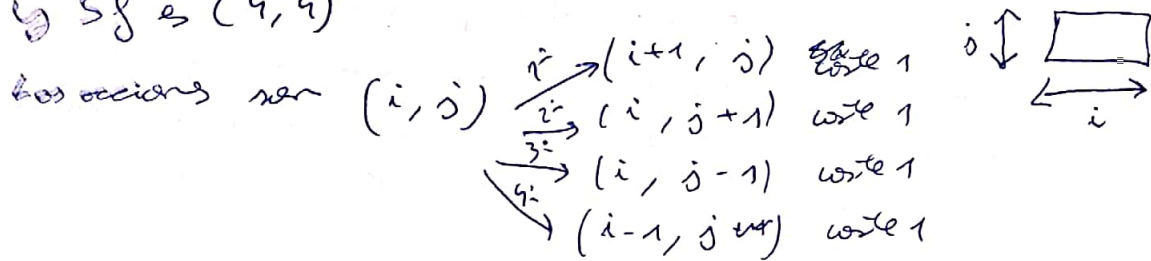 ↳ Sf es (4, 4)
Las acciones son (i, j) 1ª (i+1, j) coste 1
2ª (i, j+1) coste 1
3ª (i, j-1) coste 1
4ª (i-1, j) coste 1
j
i